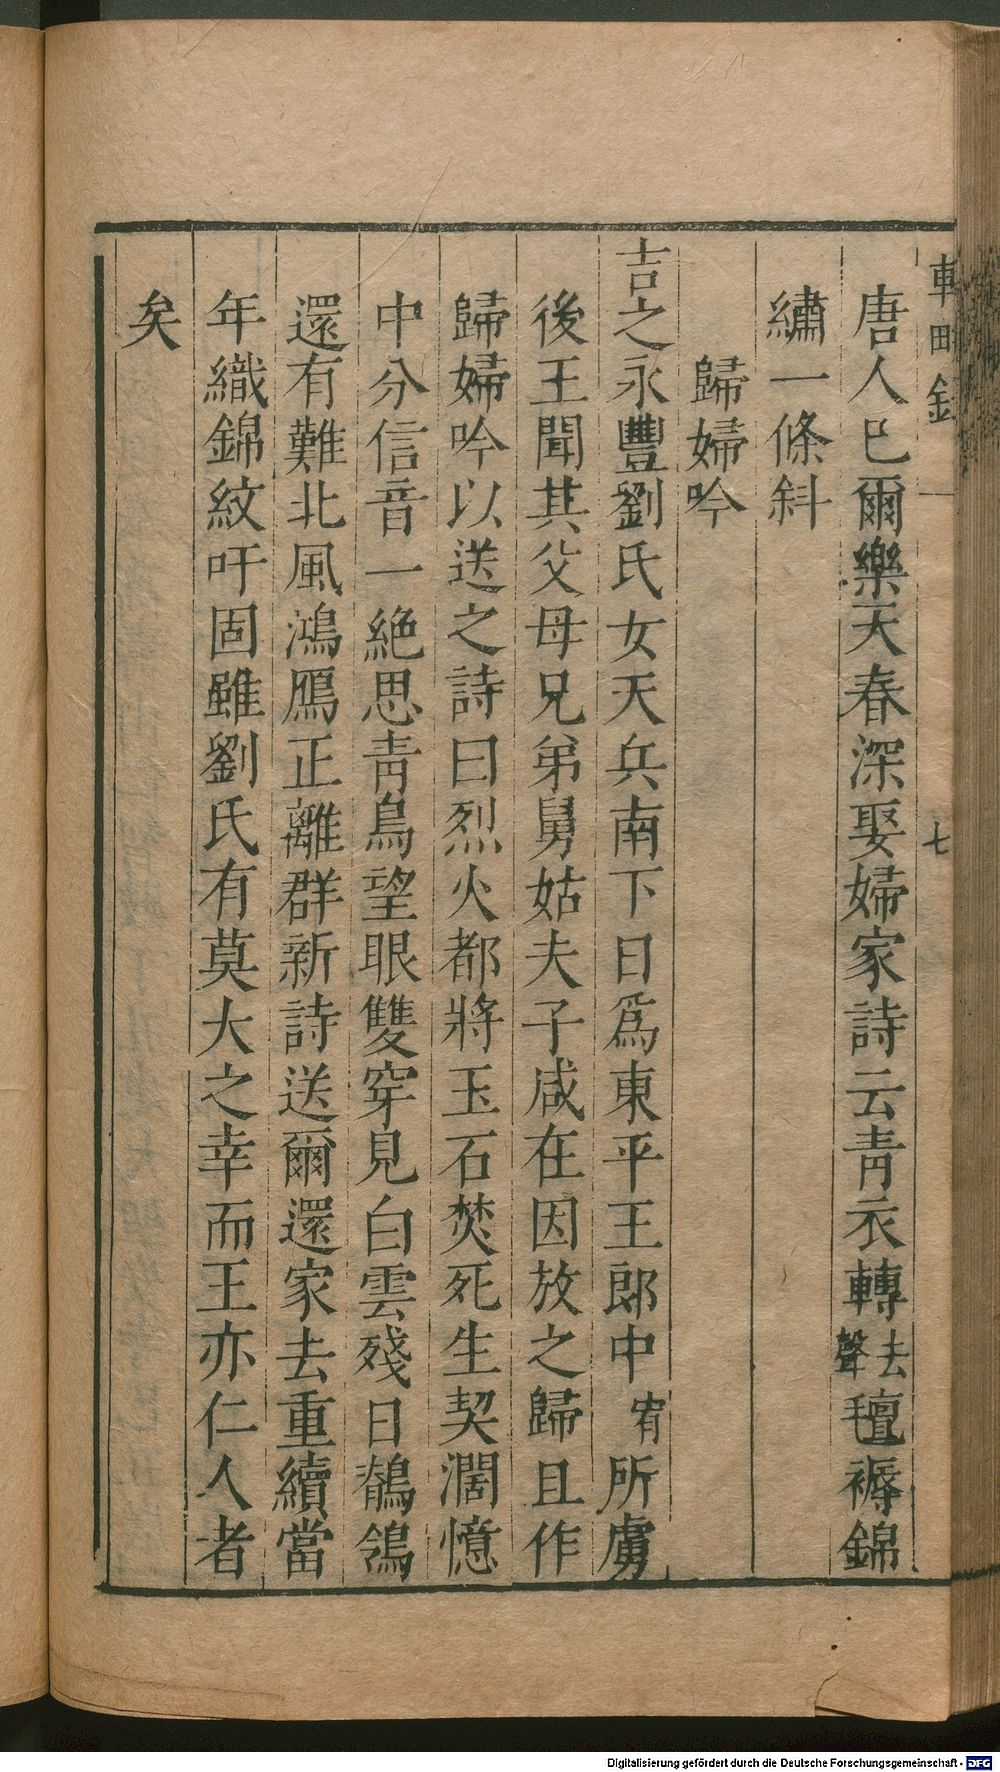 車田錄 一 七
唐人巳爾樂天春深娶婦家詩云青衣轉去聲氊褥錦
繡一條斜
歸婦吟
吉之永豐劉氏女天兵南下日爲東平王郎中宥所虜
後王聞其父母兄弟舅姑夫子咸在因放之歸且作
歸婦吟以送之詩曰烈火都將玉石焚死生契濶憶
中分信音一絕思青鳥望眼雙穿見白雲殘日鶺鴒
還有難北風鴻鴈正離群新詩送爾還家去重續當
年織錦紋吁固雖劉氏有莫大之幸而王亦仁人者
矣
Digitalisierung gefördert durch die Deutsche Forschungsgemeinschaft - DFG